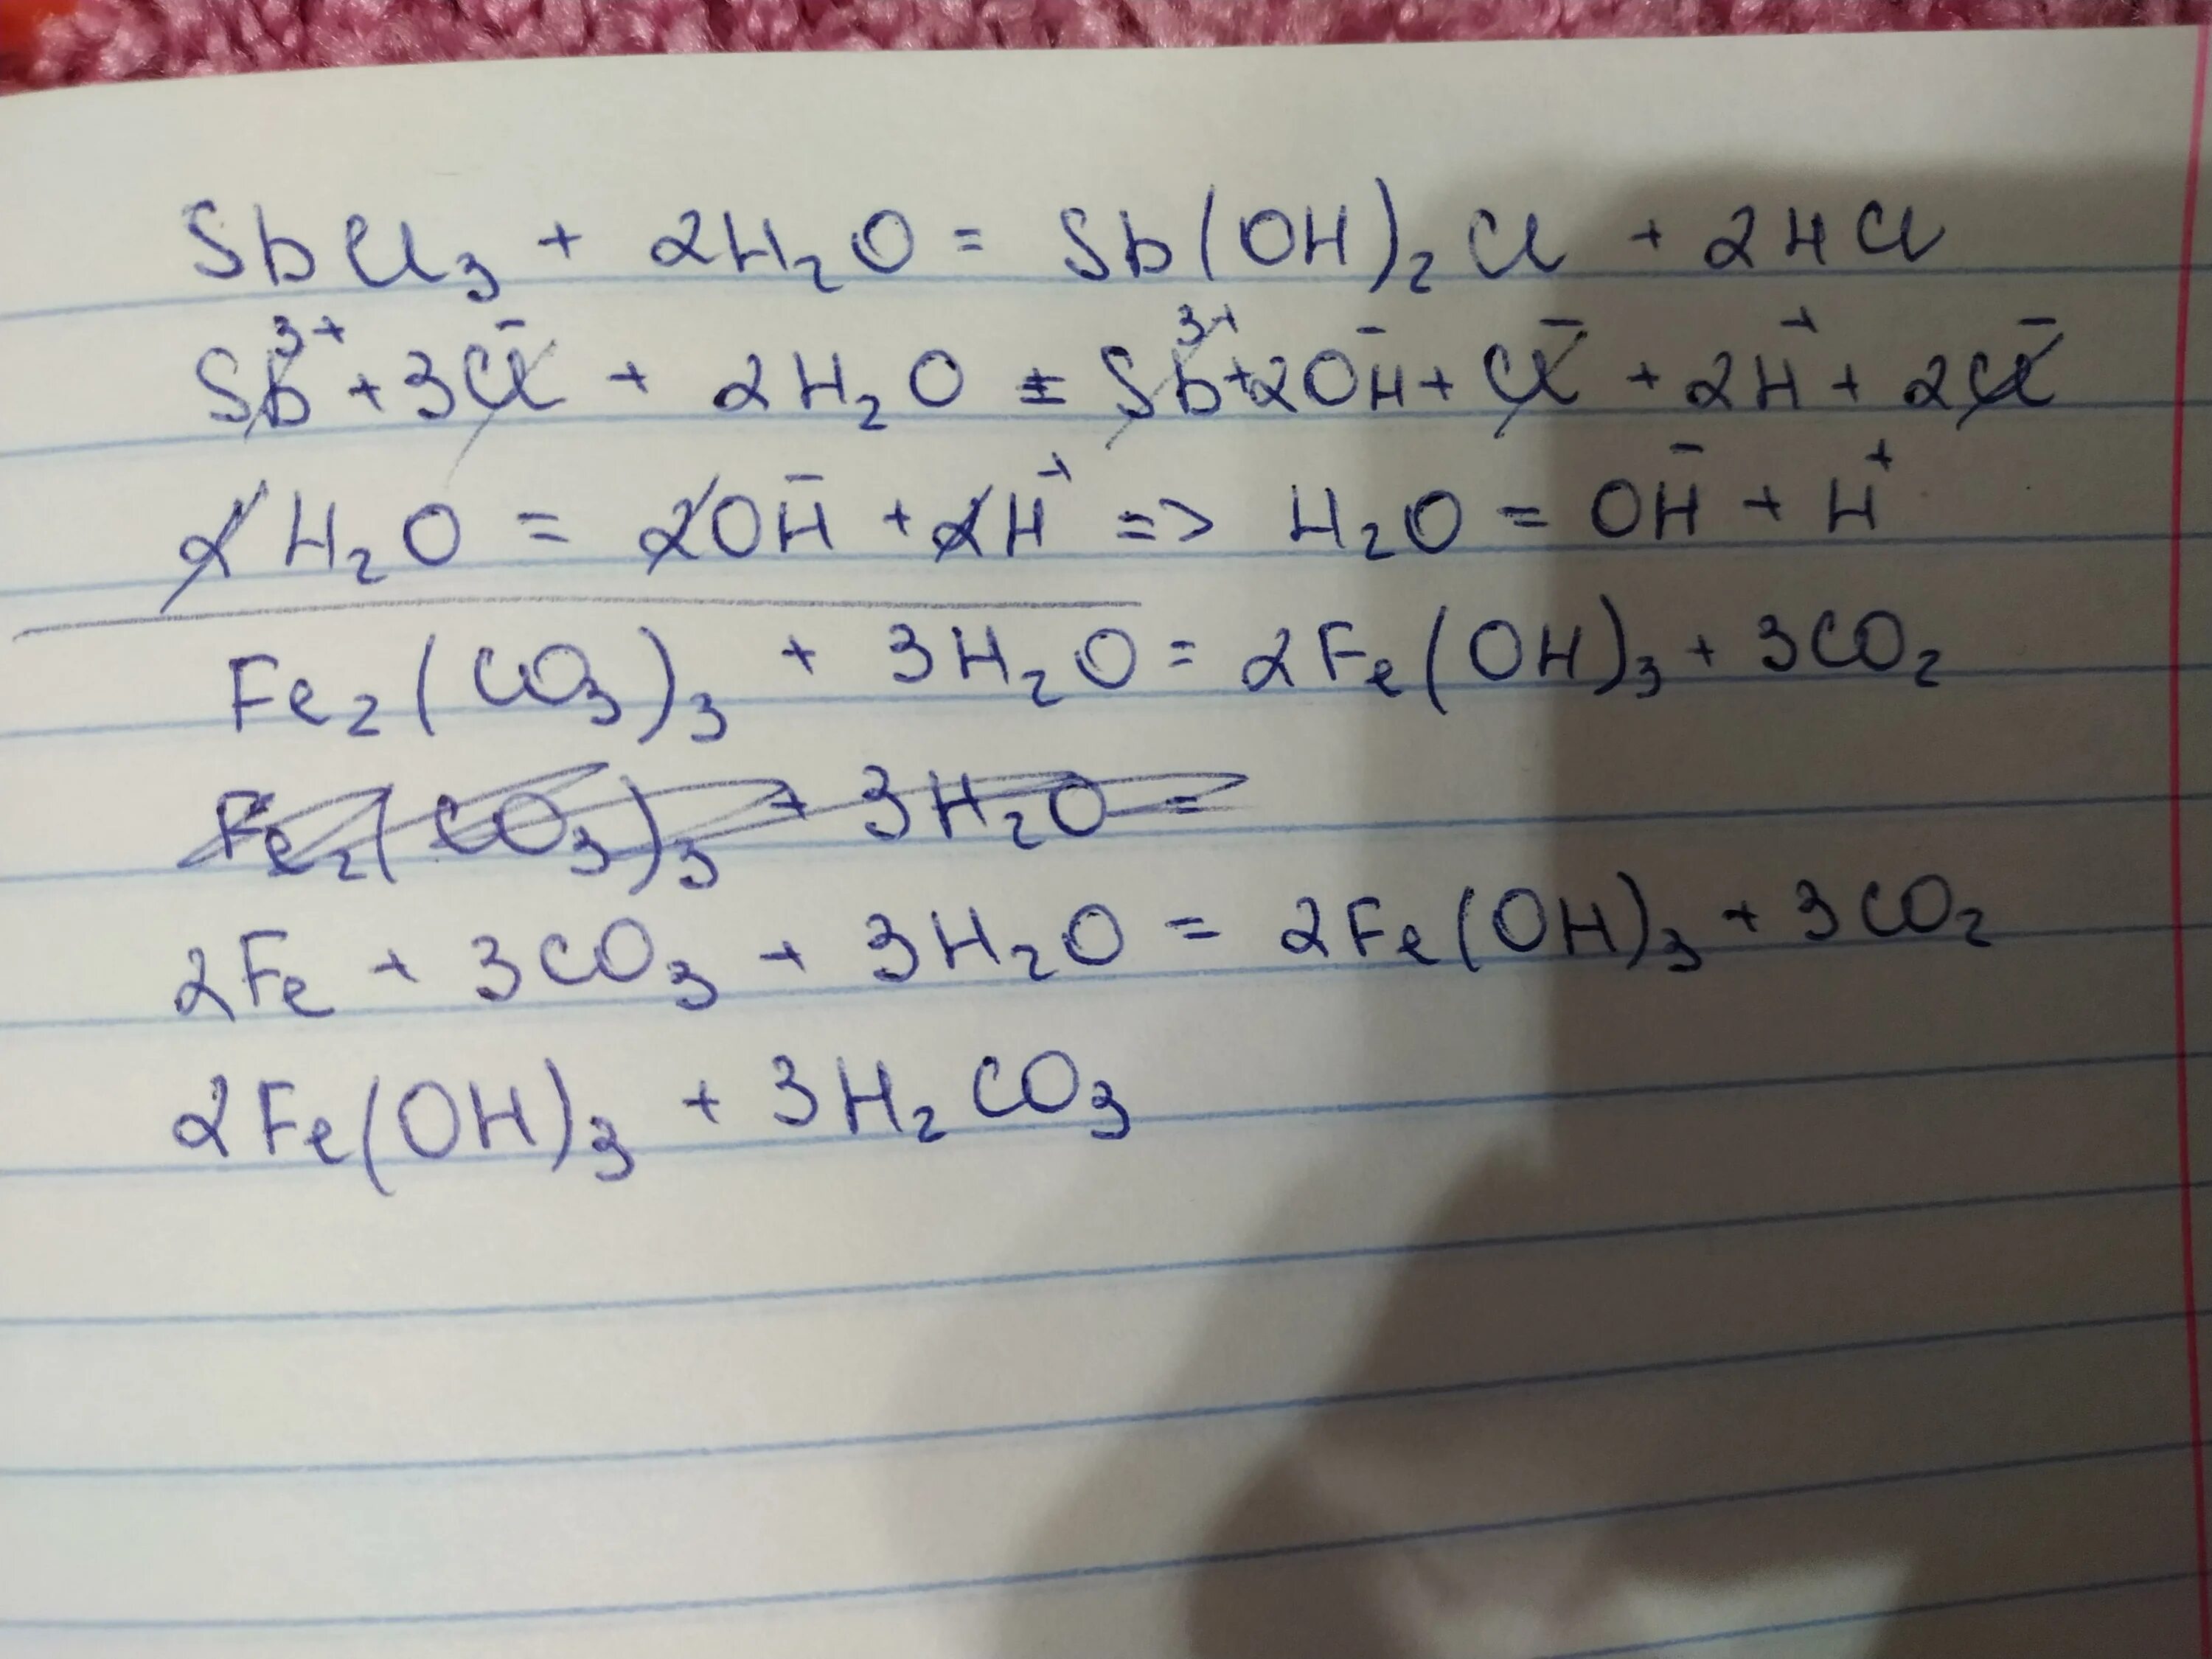 SbCl₃ + 2H₂O = Sb(OH)₂Cl + 2HCl
Sb³⁺ + 3Cl⁻ + 2H₂O = Sb³⁺ + 2OH⁻ + Cl⁻ + 2H⁺ + 2Cl⁻
2H₂O = 2OH⁻ + 2H⁺ => H₂O = OH⁻ + H⁺
Fe₂(CO₃)₃ + 3H₂O = 2Fe(OH)₃ + 3CO₂
Fe₂(CO₃)₃ + 3H₂O =
2Fe + 3CO₃ + 3H₂O = 2Fe(OH)₃ + 3CO₂
2Fe(OH)₃ + 3H₂CO₃